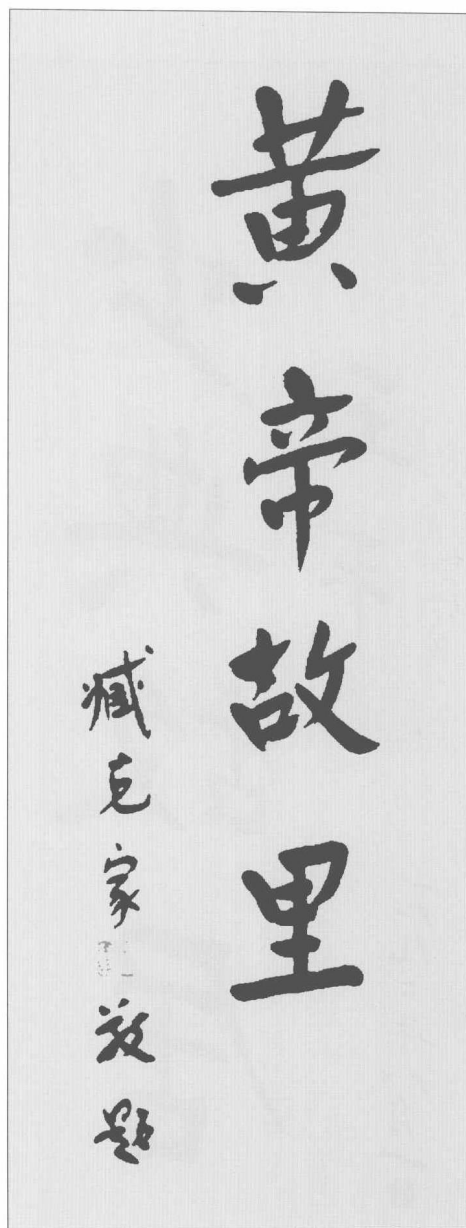 黄帝故里
臧克家敬题